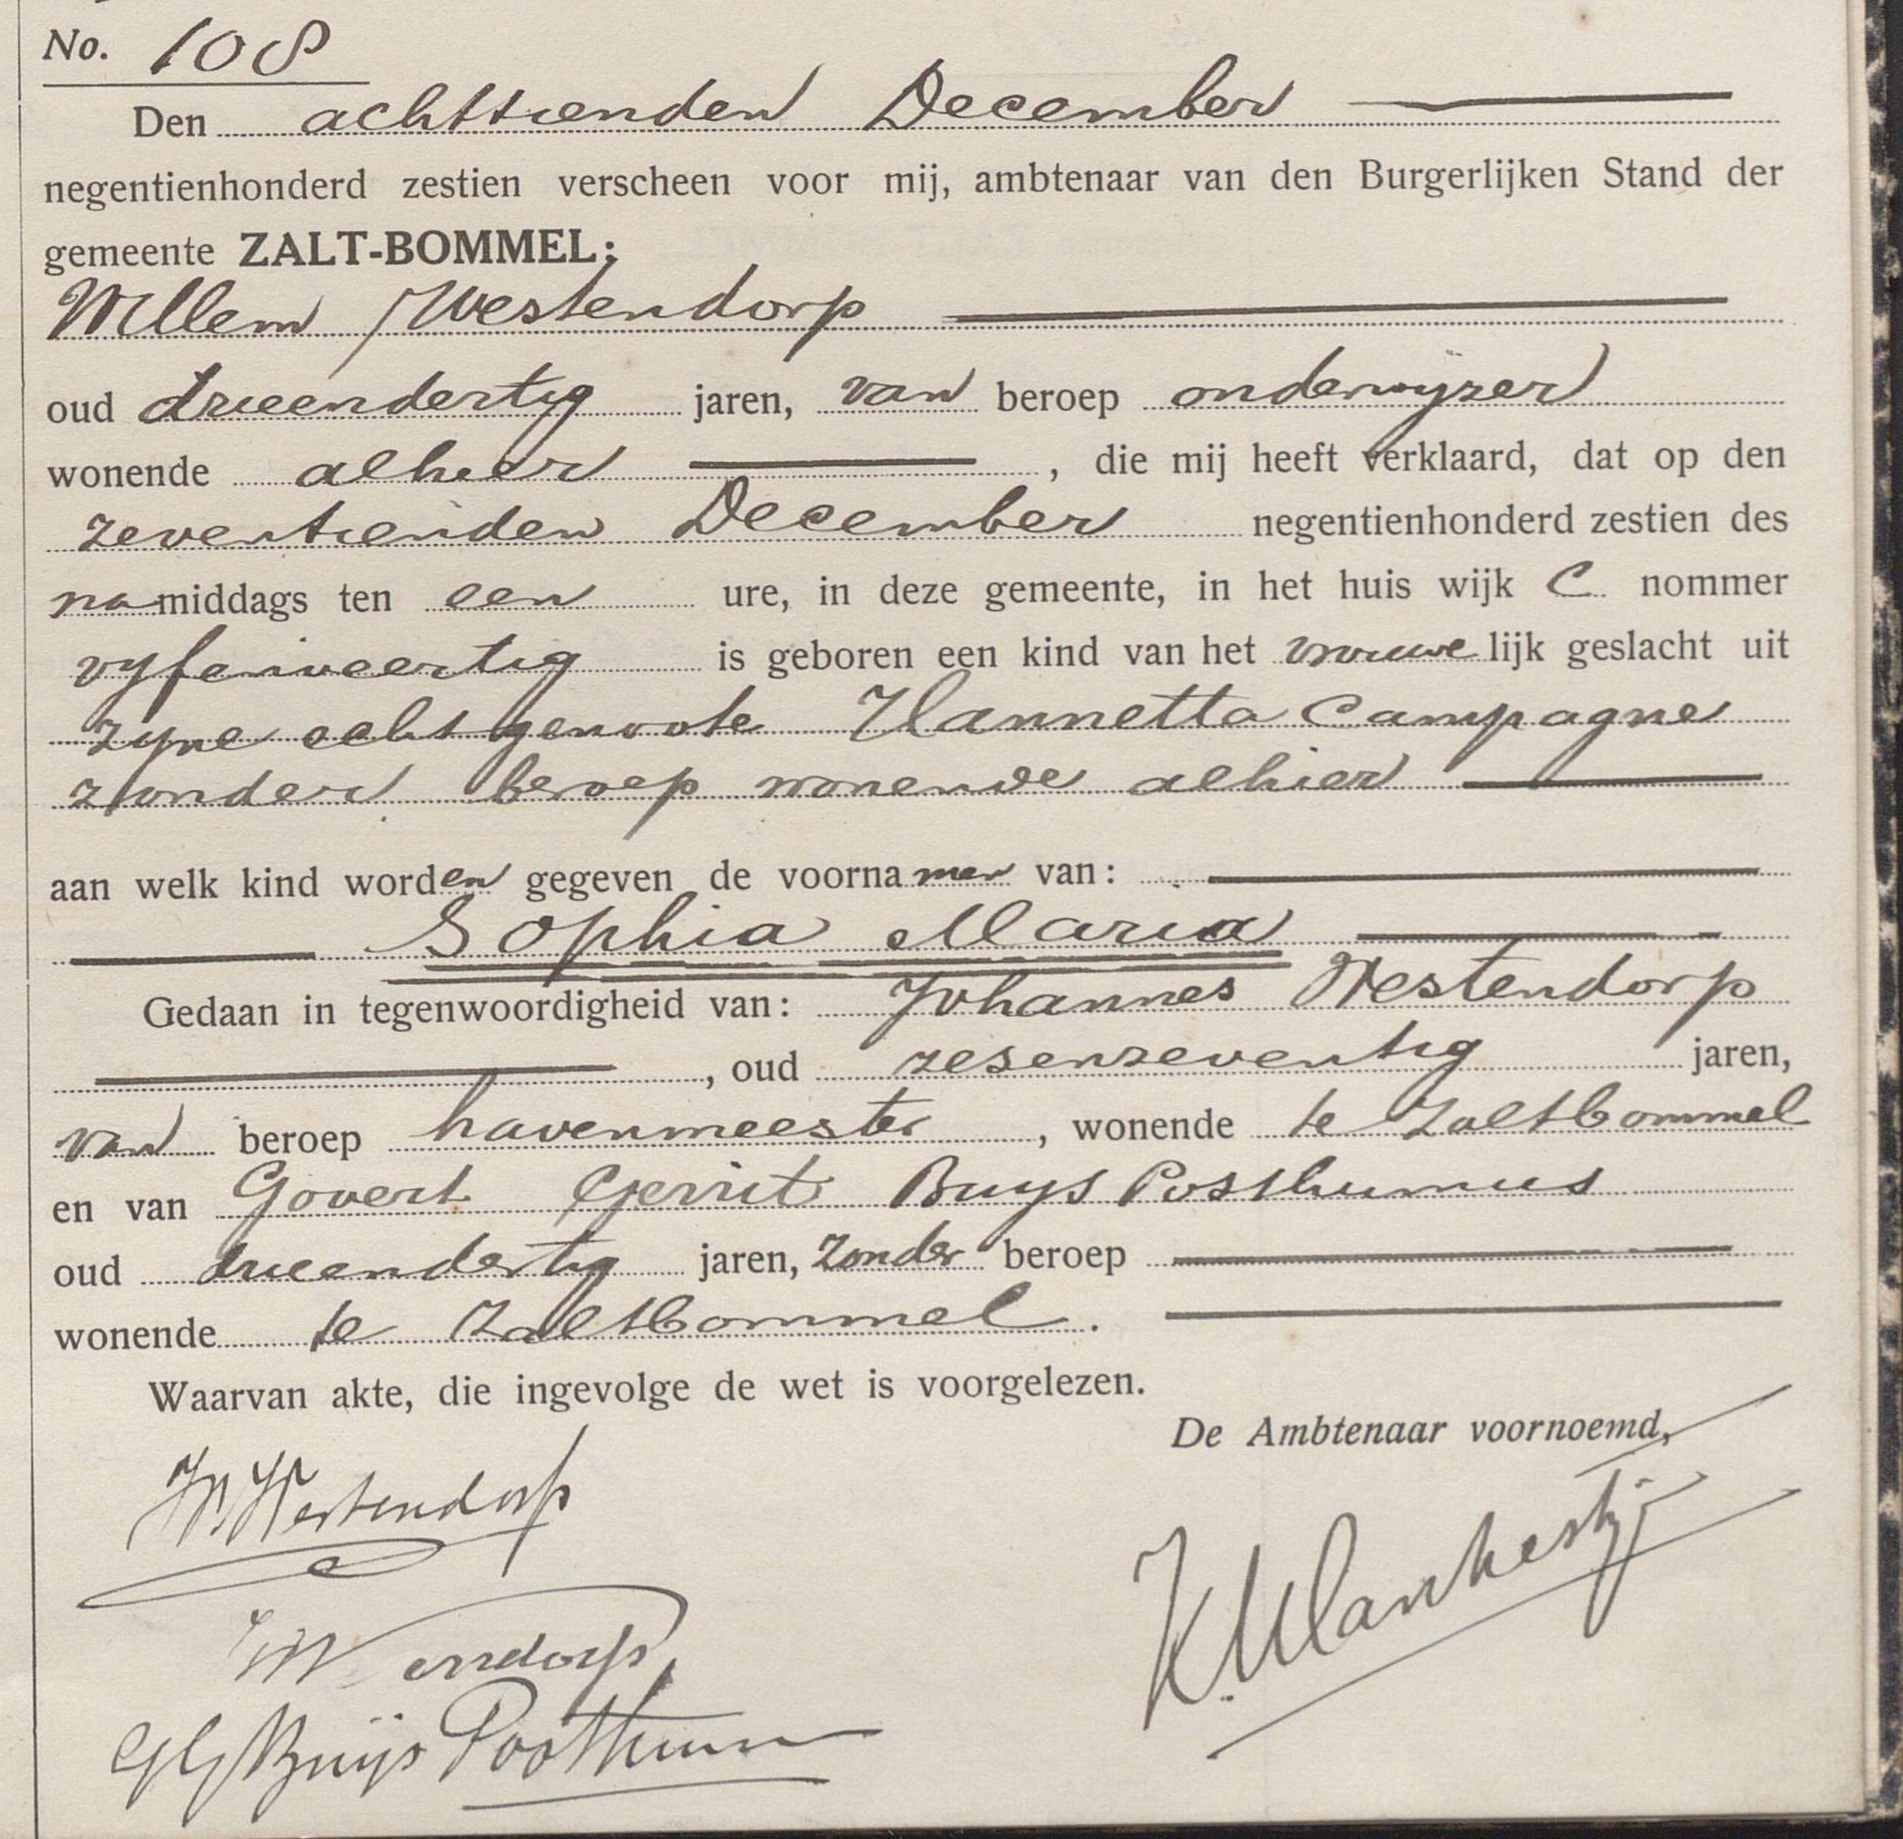 No. 108
Den achttienden December
negentienhonderd zestien verscheen voor mij, ambtenaar van den Burgerlijken Stand der
gemeente ZALT-BOMMEL:
Willem Westendorp
oud drieendertig jaren, van beroep onderwyzer
wonende alhier , die mij heeft verklaard, dat op den
zeventienden December negentienhonderd zestien des
namiddags ten een ure, in deze gemeente, in het huis wijk C nommer
vyfenveertig is geboren een kind van het vrouwelijk geslacht uit
zyne echtgenoote Hannetta Campagne
zonder beroep wonende alhier
aan welk kind worden gegeven de voornamen van:
Sophia Maria
Gedaan in tegenwoordigheid van: Johannes Westendorp
, oud zesenzeventig jaren,
van beroep havenmeester , wonende te Zaltbommel
en van Govert Gerrit Buys Posthumus
oud drieendertig jaren, zonder beroep
wonende te Zaltbommel.
Waarvan akte, die ingevolge de wet is voorgelezen.
De Ambtenaar voornoemd,
W. Westendorp
GG Buijs Posthumus